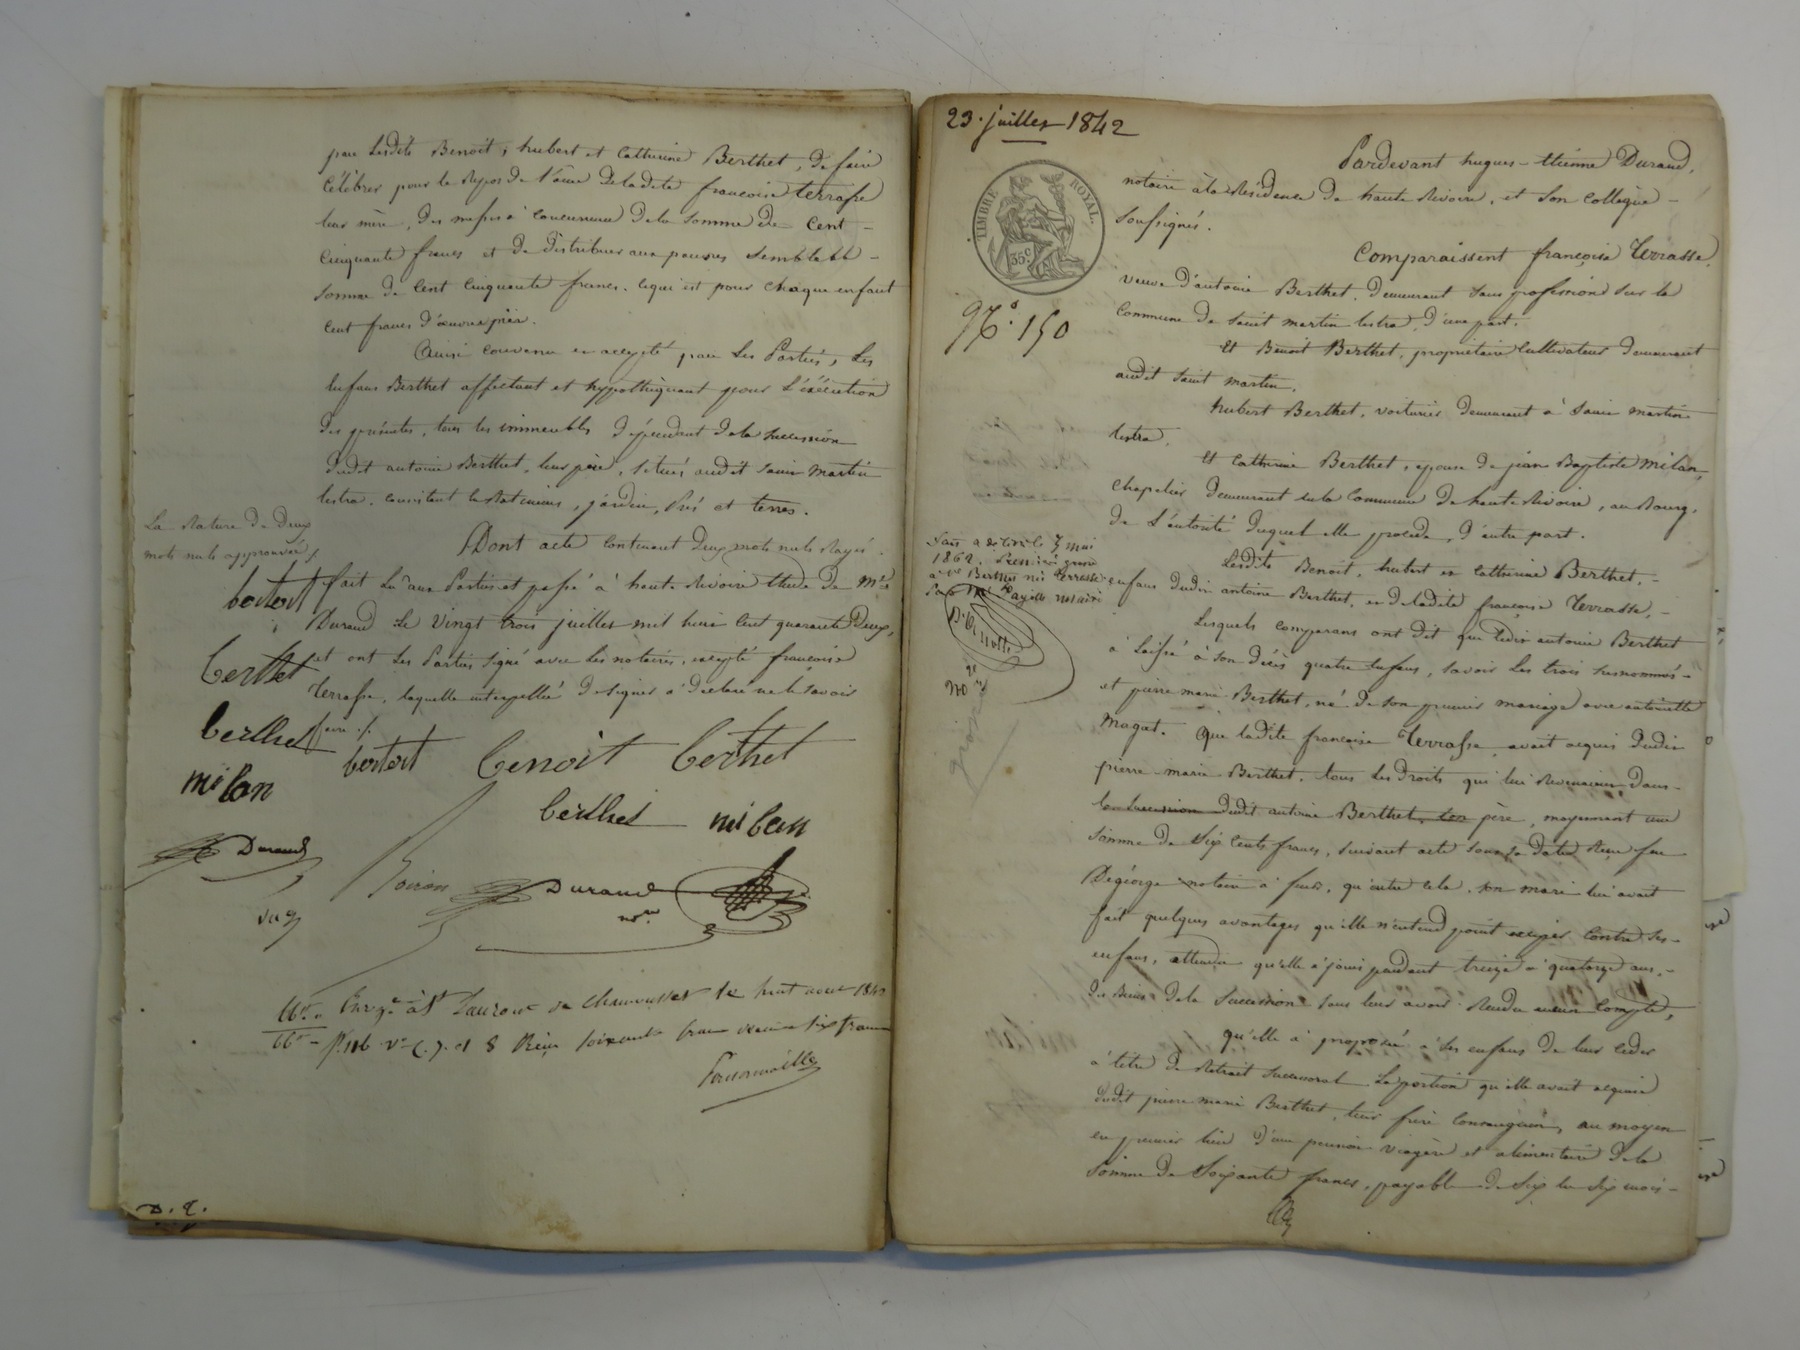 par lesdits Benoit, hubert et Catherine Berthet, de faire
célébrer pour le repos de l'âme de ladite françoise terrasse
leur mère, des messes à concurrence de la somme de cent
cinquante francs et de distribuer aux pauvres semblable
somme de cent cinquante francs. ce qui est pour chaque enfant
cent francs d'œuvre pie.
Ainsi convenu et accepté par les Parties, les
enfans Berthet affectant et hypothéquant pour l'éxécution
des présentes, tous les immeubles dépendant de la succession
dudit antoine Berthet, leur père, situés audit saint martin
lestra. consistant en batimens, jardin, Prés et terres.
La rature de deux
mots nuls approuvée /.
Dont acte contenant deux mots nuls rayés.
fait lu aux Parties et passé à haute Rivoire étude de Me
Durand le vingt trois juillet mil huit cent quarante deux,
et ont les Parties signé avec les notaires, excepté françoise
terrasse, laquelle interpellée de signer a déclaré ne le savoir
faire /.
bertert
berthet
berthet
bertert benoit berthet
milan
berthet milan
Durand
Durand
nore
Enrgé à St Laurent de Chamousset le huit aout 1842
D. 2.
23. juillet 1842
TIMBRE ROYAL.
35c
No. 150
Pardevant hugues-étienne Durand,
notaire à la Résidence de haute Rivoire, et son collègue
soussignés.
Comparaissent françoise Terrasse,
veuve d'antoine Berthet, demeurant sans profession sur la
commune de saint martin lestra, d'une part.
Et Benoit Berthet, propriétaire cultivateur demeurant
audit saint martin.
hubert Berthet, voiturier demeurant à saint martin
lestra.
Et Catherine Berthet, épouse de jean Baptiste milan,
chapelier demeurant en la commune de haute Rivoire, au Bourg,
de l'autorité duquel elle procède, d'autre part.
mai
1862. Première grosse
à Ve Berthet née Terrasse
notaire
Lesdits Benoit, hubert et Catherine Berthet,
enfans dudit antoine Berthet, et de ladite françoise Terrasse,
Lesquels comparans ont dit que ledit antoine Berthet
a laissé à son décès quatre enfans, savoir les trois susnommés
et pierre marie Berthet, né de son premier mariage avec antoinette
Magat. Que ladite françoise Terrasse, avait acquis dudit
pierre marie Berthet, tous les droits qui lui revenaient dans
la succession dudit antoine Berthet, son père, moyennant une
somme de six cents francs, suivant acte sous sa date reçu feu
Degeorge notaire à feurs, qu'outre cela, son mari lui avait
fait quelques avantages qu'elle n'entend point exiger contre ses
enfans, attendu qu'elle a joui pendant treize à quatorze ans,
des Biens de la succession sans leur avoir rendu aucun compte,
qu'elle a proposé à ses enfans de leur céder
à titre de retrait successoral la portion qu'elle avait acquise
dudit pierre marie Berthet, leur frère consanguin, au moyen
en premier lieu d'une pension viagère et alimentaire de la
somme de soixante francs, payable de six en six mois